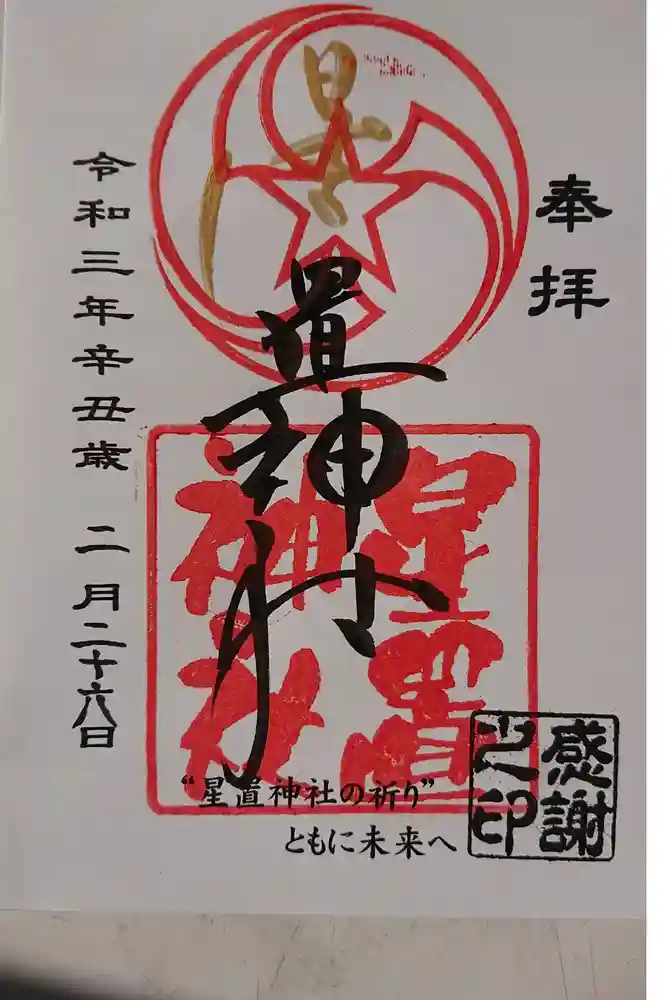 奉拝
星置神社
星置神社
令和三年辛丑歳 二月二十六日
"星置神社の祈り"
ともに未来へ
感謝之印